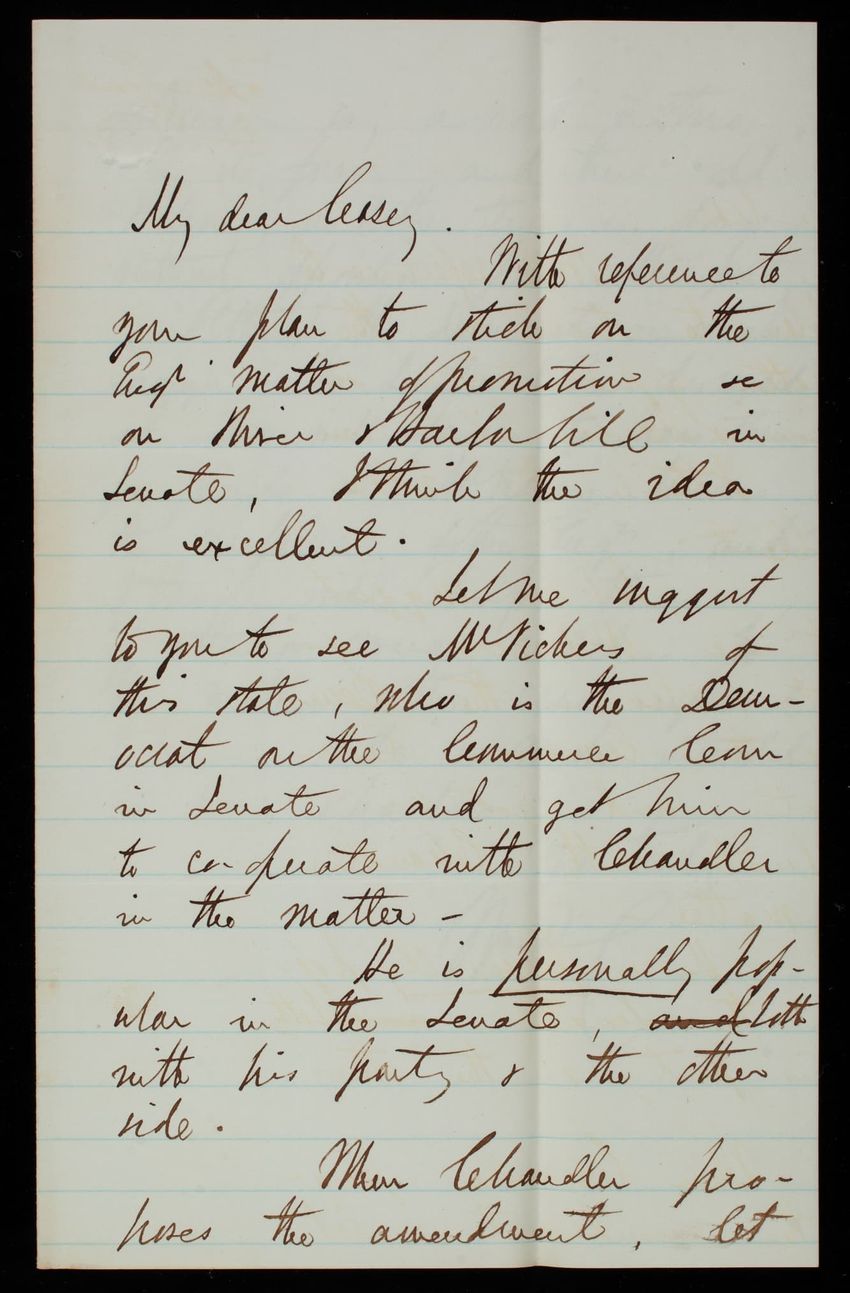 My dear Casey.
With reference to
your plan to stick on the
Engr matter of promotion &c
on River & Harbor bill in
Senate, I think the idea
is excellent.
Let me suggest
to you to see Mr Vickers of
this state, who is the Dem-
ocrat on the Commerce Com
in Senate and get him
to co-operate with Chandler
in the matter -
He is personally pop-
ular in the Senate, and both
with his party & the other
side.
When Chandler pro-
poses the amendment, let